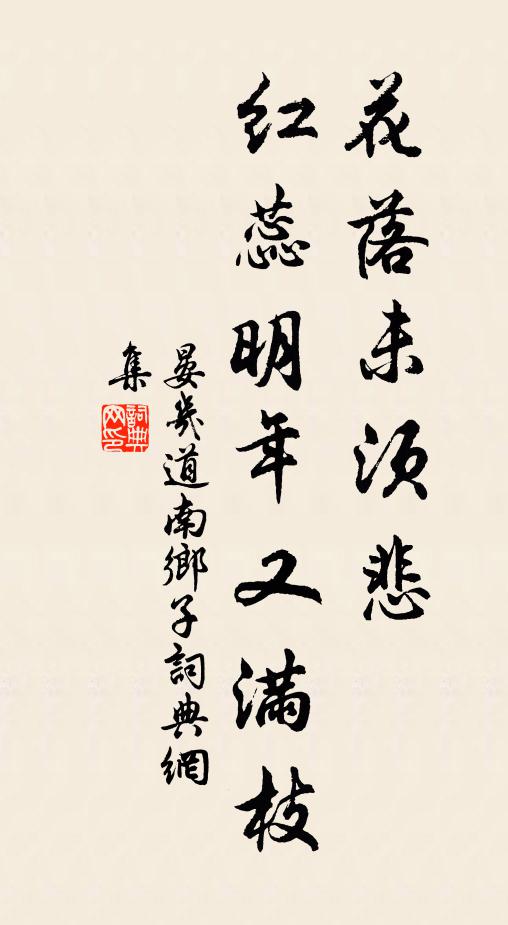 花落未須悲
紅蕊明年又滿枝
晏幾道南鄉子詞典網
集
詞典
网印